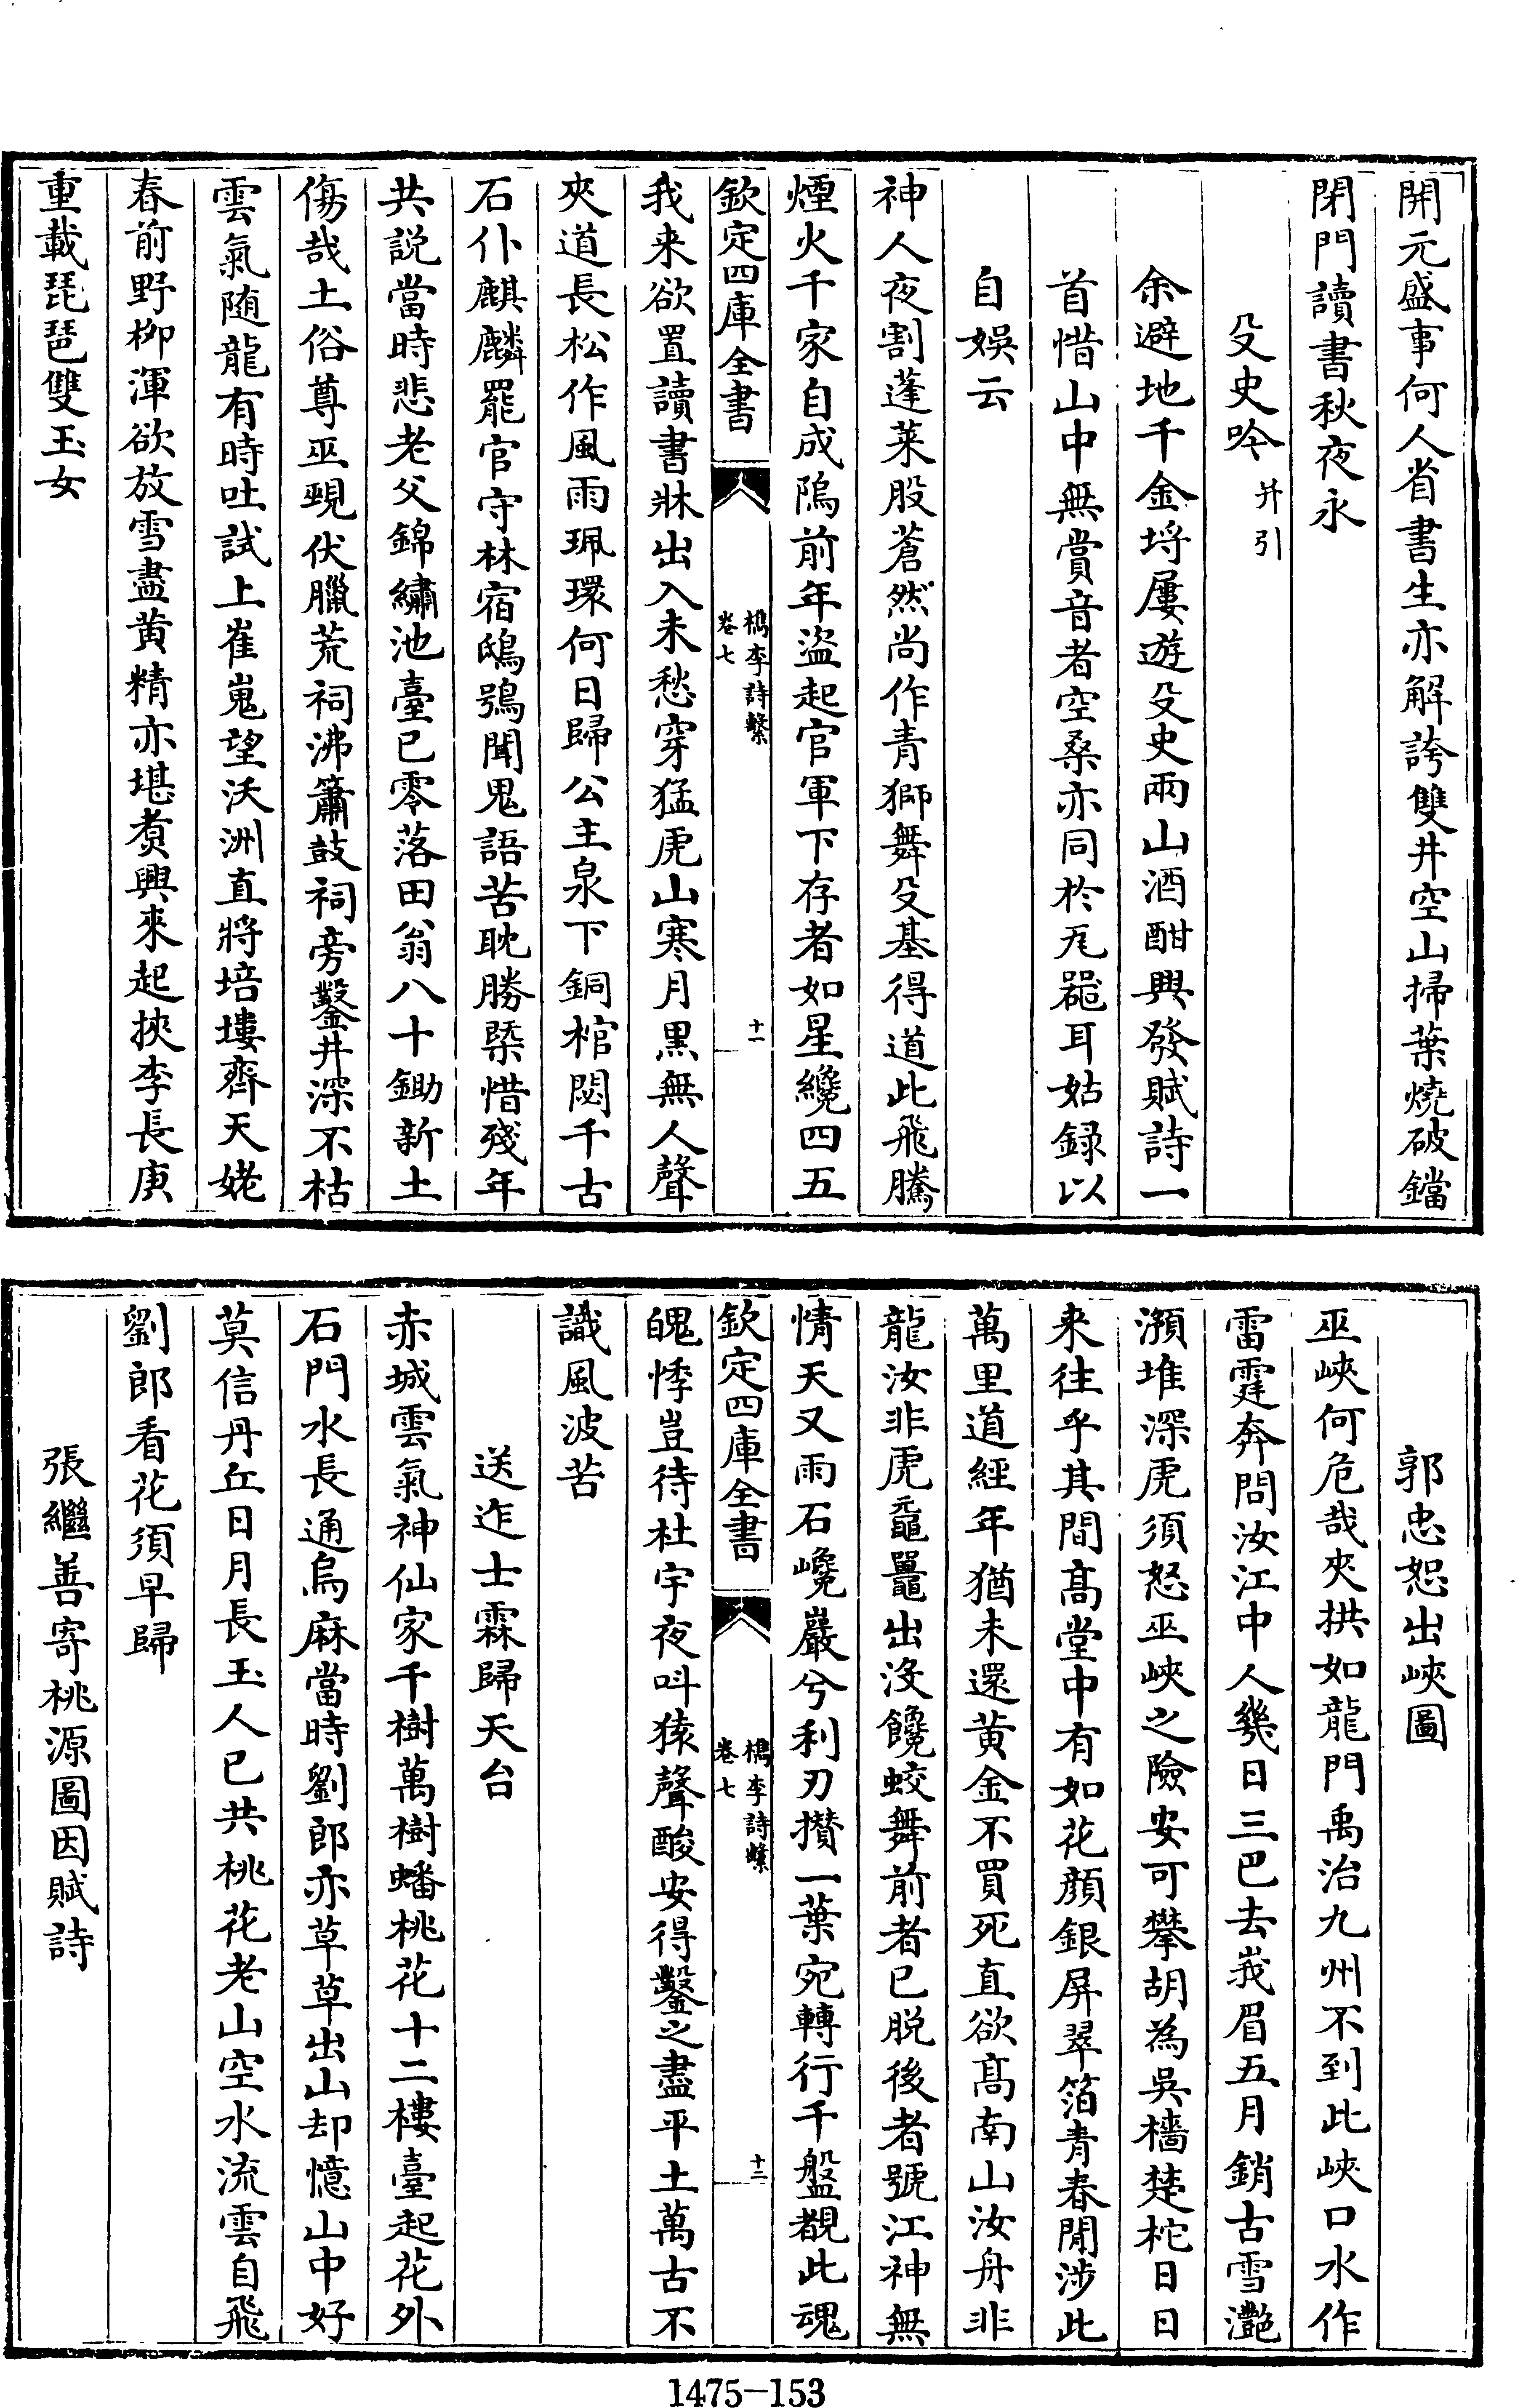 開元盛事何人省書生亦解誇雙井空山掃葉燒破鐺
閉門讀書秋夜永
殳史吟并引
余避地千金埒屢遊殳史兩山酒酣興發賦詩一
首惜山中無賞音者空桑亦同於瓦器耳姑録以
自娯云
神人夜割蓬萊股蒼然尚作青獅舞殳基得道此飛騰
煙火千家自成隖前年盜起官軍下存者如星纔四五
欽定四庫全書
檇李詩繫
卷七
十一
我来欲置讀書牀出入未愁穿猛虎山寒月黒無人聲
夾道長松作風雨珮環何日歸公主泉下銅棺閟千古
石仆麒麟罷官守林宿鴟鴞聞鬼語苦耽勝槩惜殘年
共説當時悲老父錦繡池臺已零落田翁八十鋤新土
傷哉土俗尊巫覡伏臘荒祠沸簫鼓祠旁鑿井深不枯
雲氣随龍有時吐試上崔嵬望沃洲直將培塿齊天姥
春前野柳渾欲放雪盡黄精亦堪煑興來起挾李長庚
重載琵琶雙玉女
郭忠恕出峽圖
巫峽何危哉夾拱如龍門禹治九州不到此峽口水作
雷霆奔問汝江中人幾日三巴去峩眉五月銷古雪灔
澦堆深虎須怒巫峽之險安可攀胡為吳檣楚柁日日
来往乎其間髙堂中有如花顔銀屏翠箔青春閒涉此
萬里道經年猶未還黄金不買死直欲髙南山汝舟非
龍汝非虎黿鼉出沒饞蛟舞前者已脱後者號江神無
情天又雨石巉巖兮利刃攅一葉宛轉行千盤覩此魂
欽定四庫全書
檇李詩繫
卷七
十二
魄悸豈待杜宇夜呌猿聲酸安得鑿之盡平土萬古不
識風波苦
送迮士霖歸天台
赤城雲氣神仙家千樹萬樹蟠桃花十二樓臺起花外
石門水長通烏麻當時劉郎亦草草出山却憶山中好
莫信丹丘日月長玉人已共桃花老山空水流雲自飛
劉郎看花須早歸
張繼善寄桃源圖因賦詩
1475-153